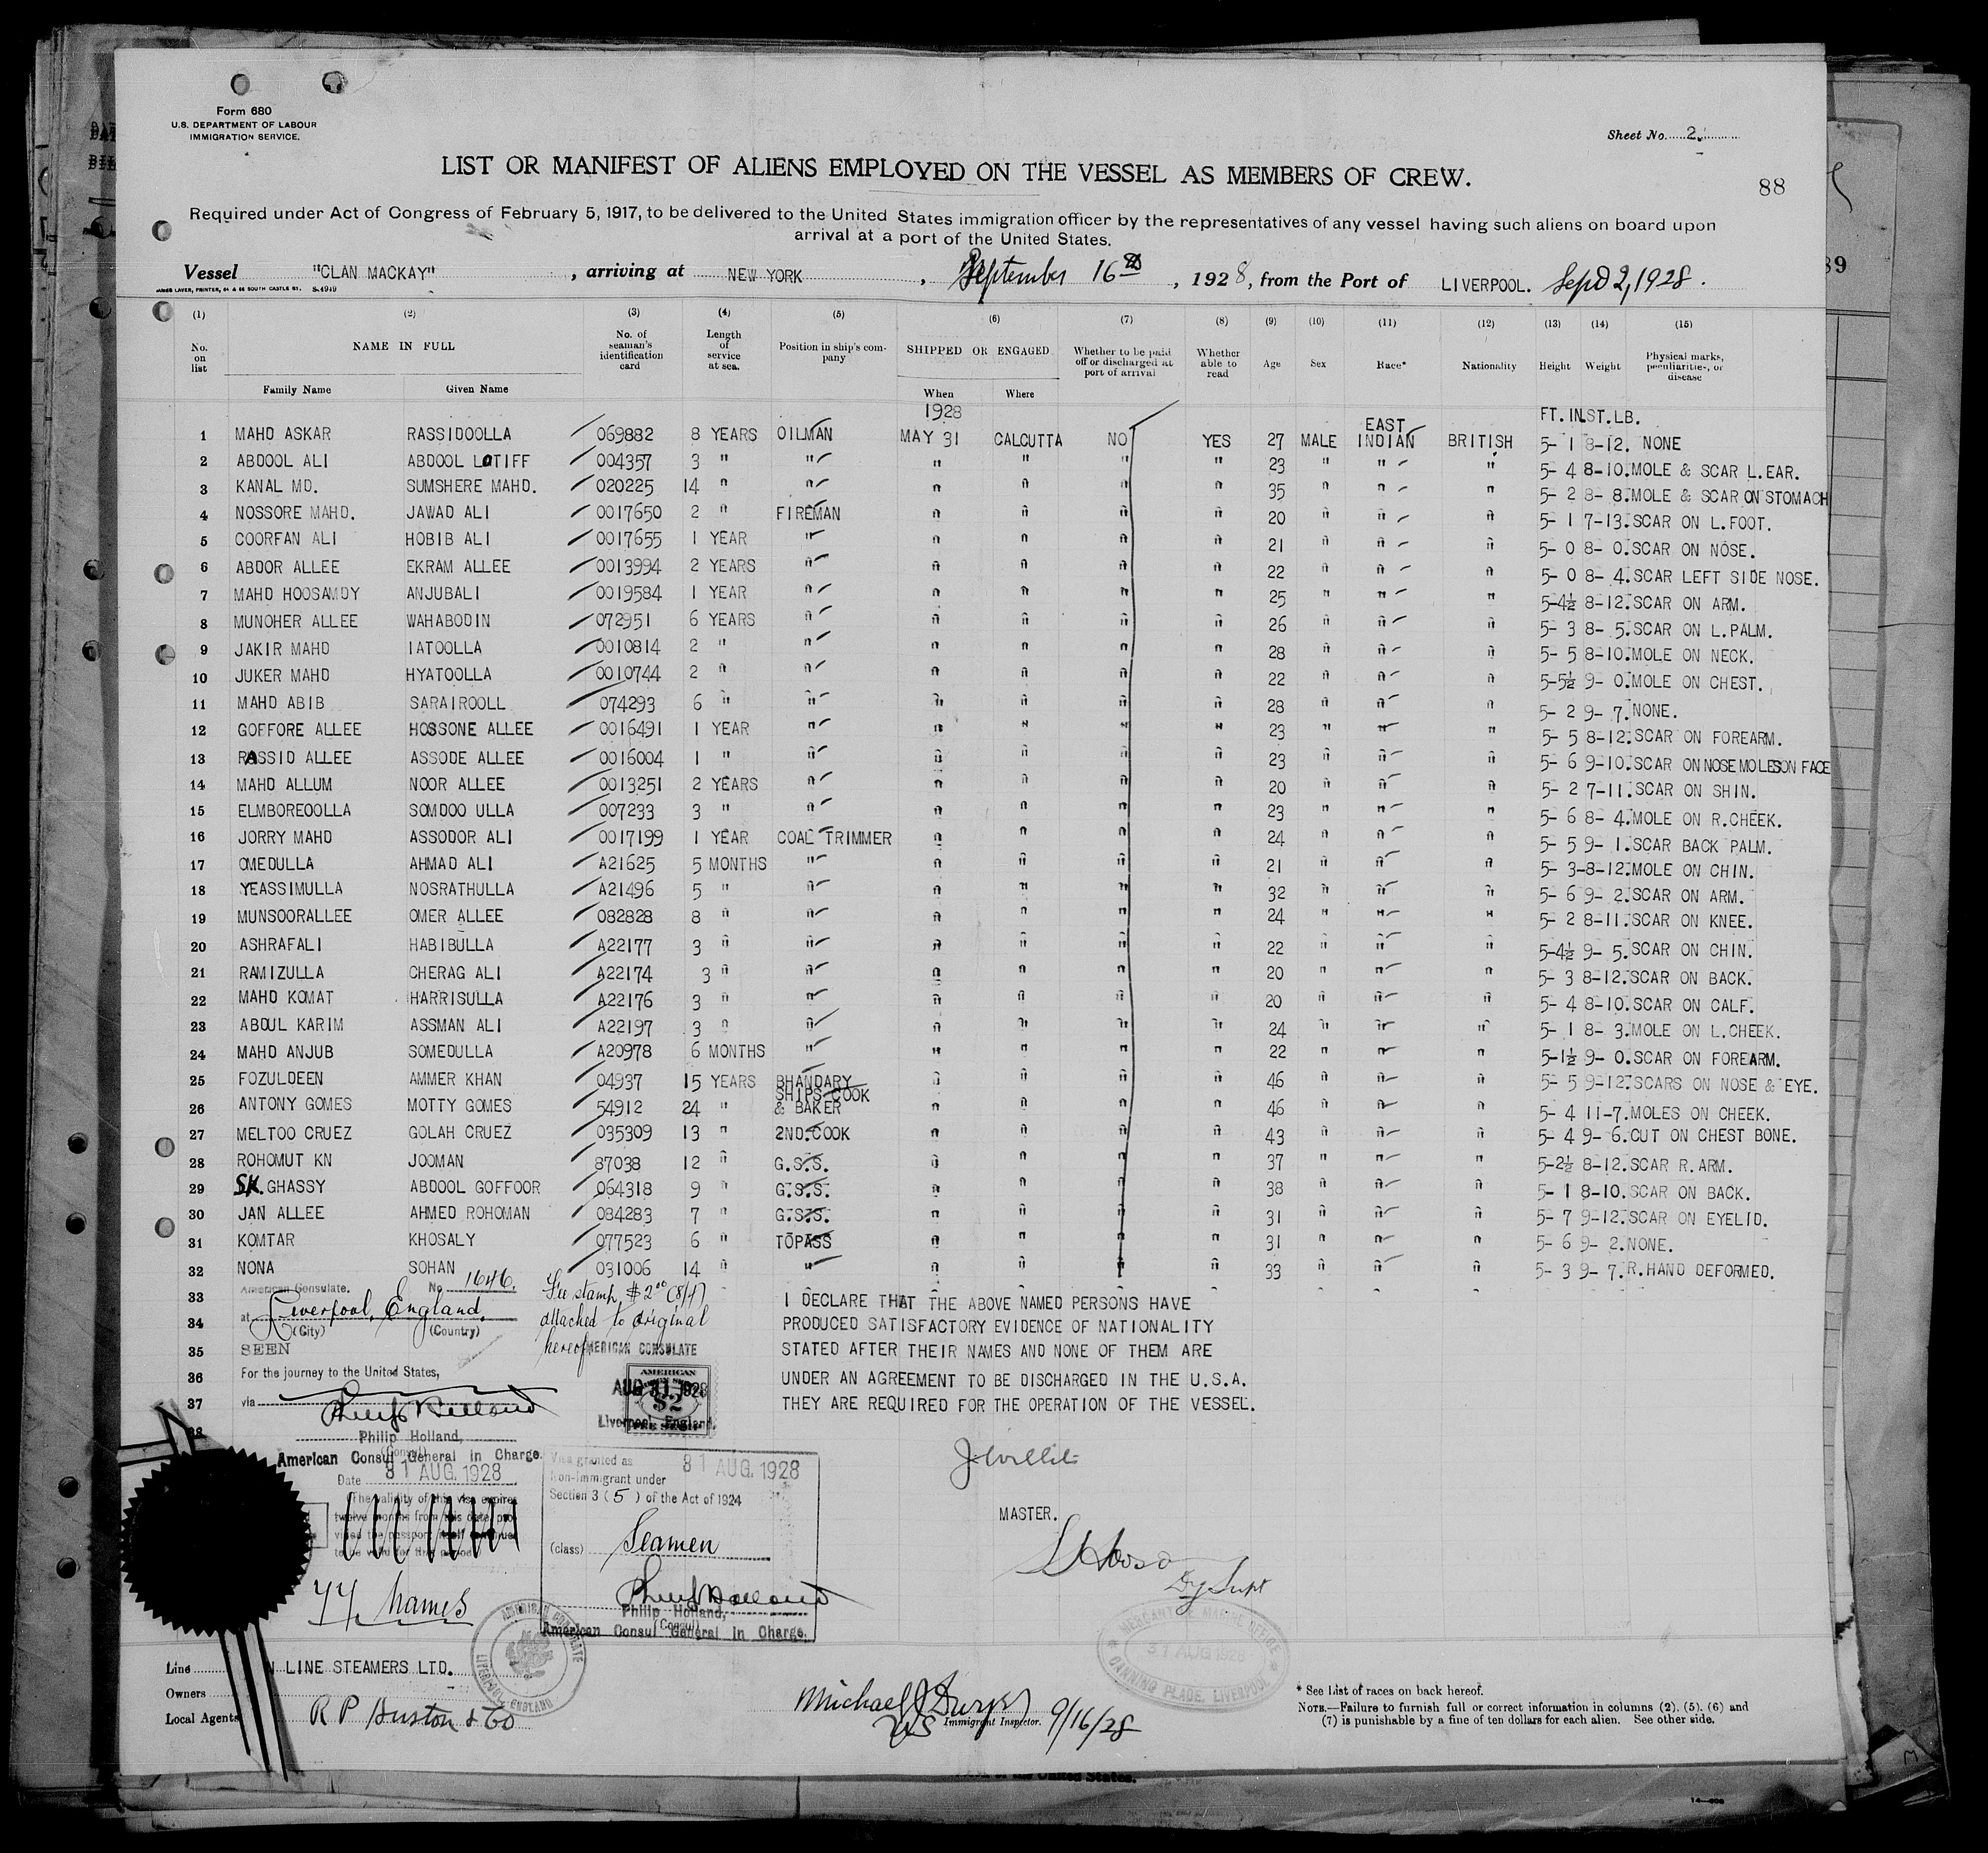 Form 680
U.S. DEPARTMENT OF LABOUR
IMMIGRATION SERVICE.
Sheet No. 2.
LIST OR MANIFEST OF ALIENS EMPLOYED ON THE VESSEL AS MEMBERS OF CREW.
88
Required under Act of Congress of February 5, 1917, to be delivered to the United States immigration officer by the representatives of any vessel having such aliens on board upon
arrival at a port of the United States.
Vessel "CLAN MACKAY", arriving at NEW YORK, September 16th, 1928, from the Port of LIVERPOOL. Sept 2, 1928.
JAMES LAVER, PRINTER, 64 & 66 SOUTH CASTLE ST. S.4949
(1) (2) (3) (4) (5) (6) (7) (8) (9) (10) (11) (12) (13) (14) (15)
No. on list NAME IN FULL No. of seaman's identification card Length of service at sea. Position in ship's company SHIPPED OR ENGAGED Whether to be paid off or discharged at port of arrival Whether able to read Age Sex Race* Nationality Height Weight Physical marks, peculiarities, or disease
Family Name Given Name When Where
1928 FT. IN. ST. LB.
1 MAHD ASKAR RASSIDOOLLA 069882 8 YEARS OILMAN MAY 31 CALCUTTA NO YES 27 MALE EAST INDIAN BRITISH 5- 1 8-12. NONE
2 ABDOOL ALI ABDOOL LATIFF 004357 3 " " " " " " 23 " " " 5- 4 8-10. MOLE & SCAR L.EAR.
3 KANAL MD. SUMSHERE MAHD. 020225 14 " " " " " " 35 " " " 5- 2 8- 8. MOLE & SCAR ON STOMACH
4 NOSSORE MAHD. JAWAD ALI 0017650 2 " FIREMAN " " " " 20 " " " 5- 1 7-13. SCAR ON L.FOOT.
5 COORFAN ALI HOBIB ALI 0017655 1 YEAR " " " " " 21 " " " 5- 0 8- 0. SCAR ON NOSE.
6 ABDOR ALLEE EKRAM ALLEE 0013994 2 YEARS " " " " " 22 " " " 5- 0 8- 4. SCAR LEFT SIDE NOSE.
7 MAHD HOOSAMDY ANJUBALI 0019584 1 YEAR " " " " " 25 " " " 5-4½ 8-12. SCAR ON ARM.
8 MUNOHER ALLEE WAHABODIN 072951 6 YEARS " " " " " 26 " " " 5- 3 8- 5. SCAR ON L.PALM.
9 JAKIR MAHD IATOOLLA 0010814 2 " " " " " " 28 " " " 5- 5 8-10. MOLE ON NECK.
10 JUKER MAHD HYATOOLLA 0010744 2 " " " " " " 22 " " " 5-5½ 9- 0. MOLE ON CHEST.
11 MAHD ABIB SARAIROOLL 074293 6 " " " " " " 28 " " " 5- 2 9- 7. NONE.
12 GOFFORE ALLEE HOSSONE ALLEE 0016491 1 YEAR " " " " " 23 " " " 5- 5 8-12. SCAR ON FOREARM.
13 RASSID ALLEE ASSODE ALLEE 0016004 1 " " " " " " 23 " " " 5- 6 9-10. SCAR ON NOSE MOLES ON FACE
14 MAHD ALLUM NOOR ALLEE 0013251 2 YEARS " " " " " 20 " " " 5- 2 7-11. SCAR ON SHIN.
15 ELMBOREOOLLA SOMDOO ULLA 007233 3 " " " " " " 23 " " " 5- 6 8- 4. MOLE ON R.CHEEK.
16 JORRY MAHD ASSODOR ALI 0017199 1 YEAR COAL TRIMMER " " " " 24 " " " 5- 5 9- 1. SCAR BACK PALM.
17 OMEDULLA AHMAD ALI A21625 5 MONTHS " " " " " 21 " " " 5- 3-8-12. MOLE ON CHIN.
18 YEASSIMULLA NOSRATHULLA A21496 5 " " " " " " 32 " " " 5- 6 9- 2. SCAR ON ARM.
19 MUNSOORALLEE OMER ALLEE 082828 8 " " " " " " 24 " " " 5- 2 8-11. SCAR ON KNEE.
20 ASHRAFALI HABIBULLA A22177 3 " " " " " " 22 " " " 5-4½ 9- 5. SCAR ON CHIN.
21 RAMIZULLA CHERAG ALI A22174 3 " " " " " " 20 " " " 5- 3 8-12. SCAR ON BACK.
22 MAHD KOMAT HARRISULLA A22176 3 " " " " " " 20 " " " 5- 4 8-10. SCAR ON CALF.
23 ABDUL KARIM ASSMAN ALI A22197 3 " " " " " " 24 " " " 5- 1 8- 3. MOLE ON L.CHEEK.
24 MAHD ANJUB SOMEDULLA A20978 6 MONTHS " " " " " 22 " " " 5-1½ 9- 0. SCAR ON FOREARM.
25 FOZULDEEN AMMER KHAN 04937 15 YEARS BHANDARY " " " " 46 " " " 5- 5 9-12. SCARS ON NOSE & EYE.
26 ANTONY GOMES MOTTY GOMES 54912 24 " SHIPS COOK & BAKER " " " " 46 " " " 5- 4 11-7. MOLES ON CHEEK.
27 MELTOO CRUEZ GOLAH CRUEZ 035309 13 " 2ND.COOK " " " " 43 " " " 5- 4 9- 6. CUT ON CHEST BONE.
28 ROHOMUT KN JOOMAN 87038 12 " G.S.S. " " " " 37 " " " 5-2½ 8-12. SCAR R.ARM.
29 SK. GHASSY ABDOOL GOFFOOR 064318 9 " G.S.S. " " " " 38 " " " 5- 1 8-10. SCAR ON BACK.
30 JAN ALLEE AHMED ROHOMAN 084283 7 " G.S.S. " " " " 31 " " " 5- 7 9-12. SCAR ON EYELID.
31 KOMTAR KHOSALY 077523 6 " TOPASS " " " " 31 " " " 5- 6 9- 2. NONE.
32 NONA SOHAN 031006 14 " " " " " " 33 " " " 5- 3 9- 7. R.HAND DEFORMED.
33
34
35
36
37
38
American Consulate. No. 1646.
at Liverpool, England.
(City) (Country)
SEEN
For the journey to the United States,
via
Philip Holland
Philip Holland,
(Consul)
American Consul General in Charge.
Date 31 AUG. 1928
The validity of this visa expires
twelve months from this date, pro-
vided the passport itself continues
to be valid for that period
44 names
Fee stamp $2.00 (8/4)
attached to original
hereof
AMERICAN CONSULATE
AUG 31 1928
Liverpool, England.
AMERICAN
$2
FEE STAMP
I DECLARE THAT THE ABOVE NAMED PERSONS HAVE
PRODUCED SATISFACTORY EVIDENCE OF NATIONALITY
STATED AFTER THEIR NAMES AND NONE OF THEM ARE
UNDER AN AGREEMENT TO BE DISCHARGED IN THE U.S.A.
THEY ARE REQUIRED FOR THE OPERATION OF THE VESSEL.
MASTER.
Dy Supt
Visa granted as 31 AUG. 1928
Non-immigrant under
Section 3 (5) of the Act of 1924
(class) Seamen
Philip Holland
Philip Holland,
(Consul)
American Consul General in Charge.
AMERICAN CONSULATE
LIVERPOOL, ENGLAND
MERCANTILE MARINE OFFICE
31 AUG 1928
CANNING PLACE, LIVERPOOL
Line N LINE STEAMERS LTD.
Owners
Local Agents R P Huston & Co
Michael J
US Immigrant Inspector. 9/16/28
* See List of races on back hereof.
NOTE.—Failure to furnish full or correct information in columns (2), (5), (6) and
(7) is punishable by a fine of ten dollars for each alien. See other side.
of the United States.
89